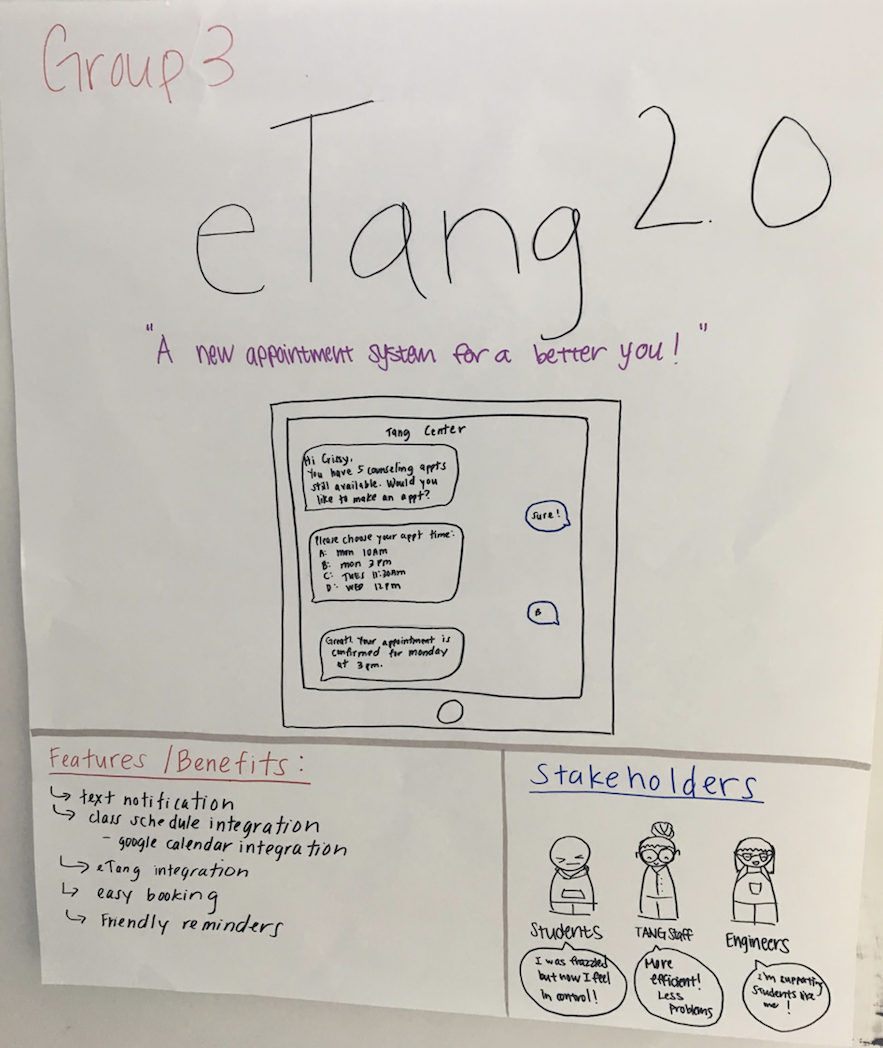 Group 3
eTang 2.0
"A new appointment system for a better you!"
Tang Center
Hi
You have 5 counseling appts
still available. Would you
like to make an appt?
Sure!
Please choose your appt time:
A: mon 10Am
B: mon 3 pm
C: TUES 11:30Am
D: WED 12pm
B
Great! Your appointment is
confirmed for monday
at 3 pm.
Features / Benefits:
↳ text notification
↳ class schedule integration
- google calendar integration
↳ eTang integration
↳ easy booking
↳ Friendly reminders
Stakeholders
Students
TANG Staff
Engineers
I was frazzled
but now I feel
in control!
More
efficient!
Less
Problems
I'm supporting
Students like
me!